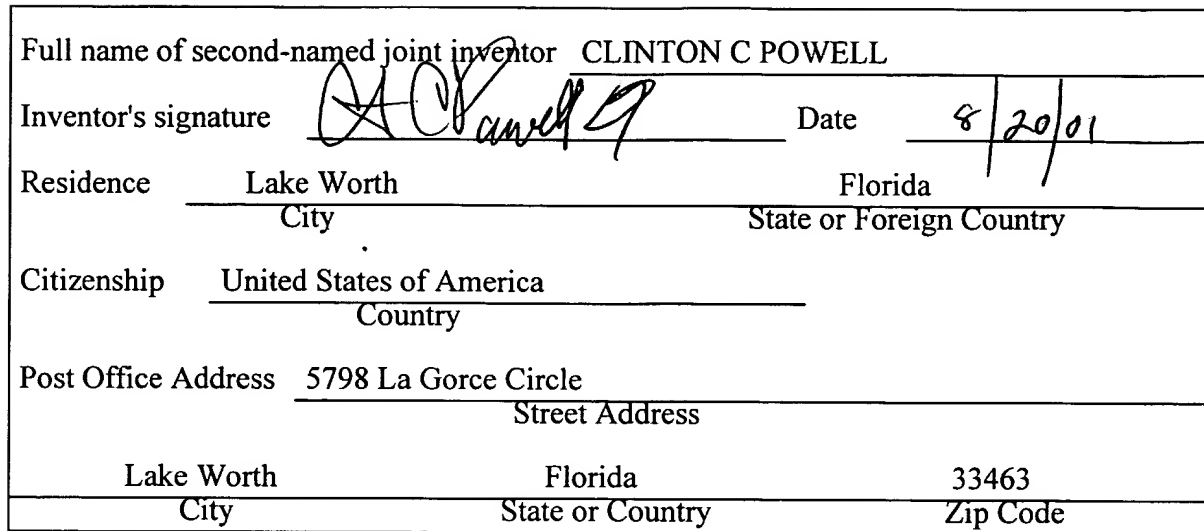 Full name of second-named joint inventor CLINTON C POWELL
Inventor's signature Date 8/20/01
Residence Lake Worth Florida
City State or Foreign Country
Citizenship United States of America
Country
Post Office Address 5798 La Gorce Circle
Street Address
Lake Worth Florida 33463
City State or Country Zip Code